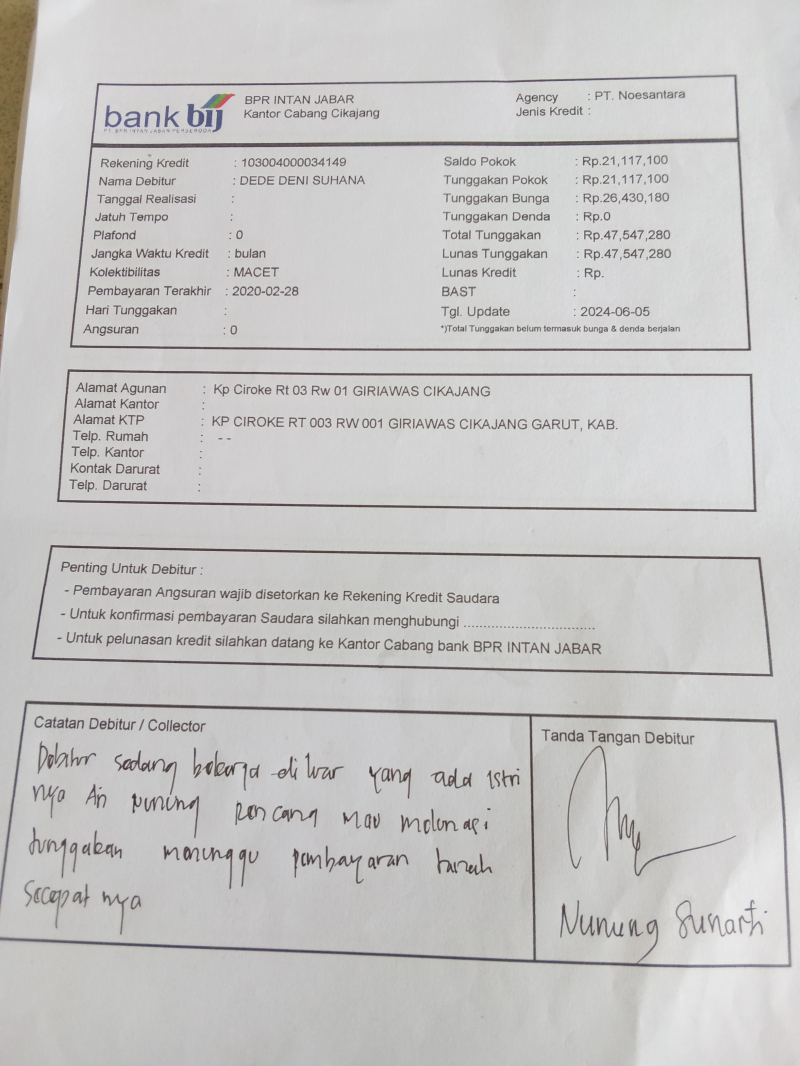 bank bij
PT. BPR INTAN JABAR PERSERODA
BPR INTAN JABAR
Kantor Cabang Cikajang
Agency : PT. Noesantara
Jenis Kredit :
Rekening Kredit : 103004000034149
Nama Debitur : DEDE DENI SUHANA
Tanggal Realisasi :
Jatuh Tempo :
Plafond : 0
Jangka Waktu Kredit : bulan
Kolektibilitas : MACET
Pembayaran Terakhir : 2020-02-28
Hari Tunggakan :
Angsuran : 0
Saldo Pokok : Rp.21,117,100
Tunggakan Pokok : Rp.21,117,100
Tunggakan Bunga : Rp.26,430,180
Tunggakan Denda : Rp.0
Total Tunggakan : Rp.47,547,280
Lunas Tunggakan : Rp.47,547,280
Lunas Kredit : Rp.
BAST :
Tgl. Update : 2024-06-05
*)Total Tunggakan belum termasuk bunga & denda berjalan
Alamat Agunan : Kp Ciroke Rt 03 Rw 01 GIRIAWAS CIKAJANG
Alamat Kantor :
Alamat KTP : KP CIROKE RT 003 RW 001 GIRIAWAS CIKAJANG GARUT, KAB.
Telp. Rumah : - -
Telp. Kantor :
Kontak Darurat :
Telp. Darurat :
Penting Untuk Debitur :
- Pembayaran Angsuran wajib disetorkan ke Rekening Kredit Saudara
- Untuk konfirmasi pembayaran Saudara silahkan menghubungi ..................................
- Untuk pelunasan kredit silahkan datang ke Kantor Cabang bank BPR INTAN JABAR
Catatan Debitur / Collector
Debitur sedang bekerja diluar yang ada istri
nya An Nuning rencang mau melunasi
tunggakan menunggu pembayaran tanah
secepat nya
Tanda Tangan Debitur
Nunung Sunarti